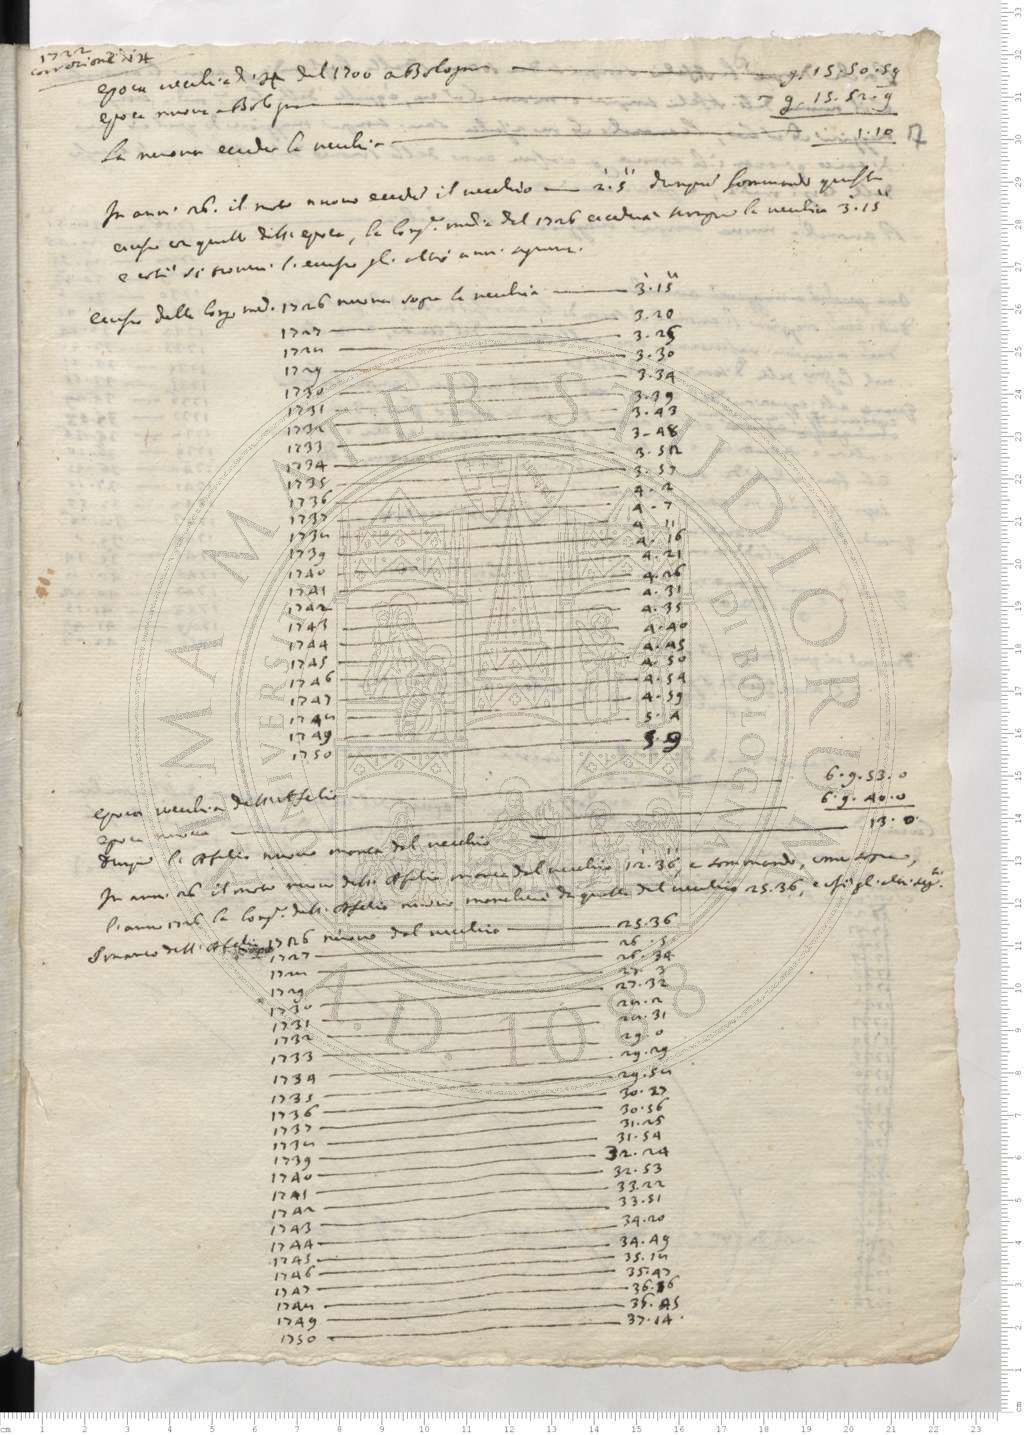 1722
correzione di ♃
epoca vecchia di ♃ del 1700 a Bologna — 9. 15. 50. 59
epoca nuova a Bologna — 9. 15. 52. 9
La nuova eccede la vecchia — 1. 10
17
In anni 26. il moto nuovo eccede il vecchio — 2. 5 dunque sommando questo
eccesso con quello dell'epoca, la long. media del 1726 eccederà sempre la vecchia 3. 15
e così si trovi l'eccesso gli altri anni
Eccesso della long. med. 1726 nuova sopra la vecchia — 3. 15
1727 — 3. 20
1728 — 3. 25
1729 — 3. 30
1730 — 3. 34
1731 — 3. 39
1732 — 3. 43
1733 — 3. 48
1734 — 3. 52
1735 — 3. 57
1736 — 4. 2
1737 — 4. 7
1738 — 4. 11
1739 — 4. 16
1740 — 4. 21
1741 — 4. 26
1742 — 4. 31
1743 — 4. 35
1744 — 4. 40
1745 — 4. 45
1746 — 4. 50
1747 — 4. 54
1748 — 4. 59
1749 — 5. 4
1750 — 5. 9
epoca vecchia dell'Afelio — 6. 9. 53. 0
epoca nuova — 6. 9. 40. 0
dunque l'Afelio nuovo manca dal vecchio — 13. 0
In anni 26 il moto nuovo dell'Afelio manca dal vecchio 12. 36, e sommando, come sopra,
l'anno 1726 la long. dell'Afelio nuovo mancherà da quella del vecchio 25. 36, e così gli altri
dell'Afelio 1726 nuovo dal vecchio — 25. 36
1727 — 26. 5
1728 — 26. 34
1729 — 27. 3
1730 — 27. 32
1731 — 28. 2
1732 — 28. 31
1733 — 29. 0
1734 — 29. 29
1735 — 29. 58
1736 — 30. 27
1737 — 30. 56
1738 — 31. 25
1739 — 31. 54
1740 — 32. 24
1741 — 32. 53
1742 — 33. 22
1743 — 33. 51
1744 — 34. 20
1745 — 34. 49
1746 — 35. 18
1747 — 35. 47
1748 — 36. 16
1749 — 36. 45
1750 — 37. 14
ALMA MATER STUDIORUM
UNIVERSITÀ DI BOLOGNA
A.D. 1088